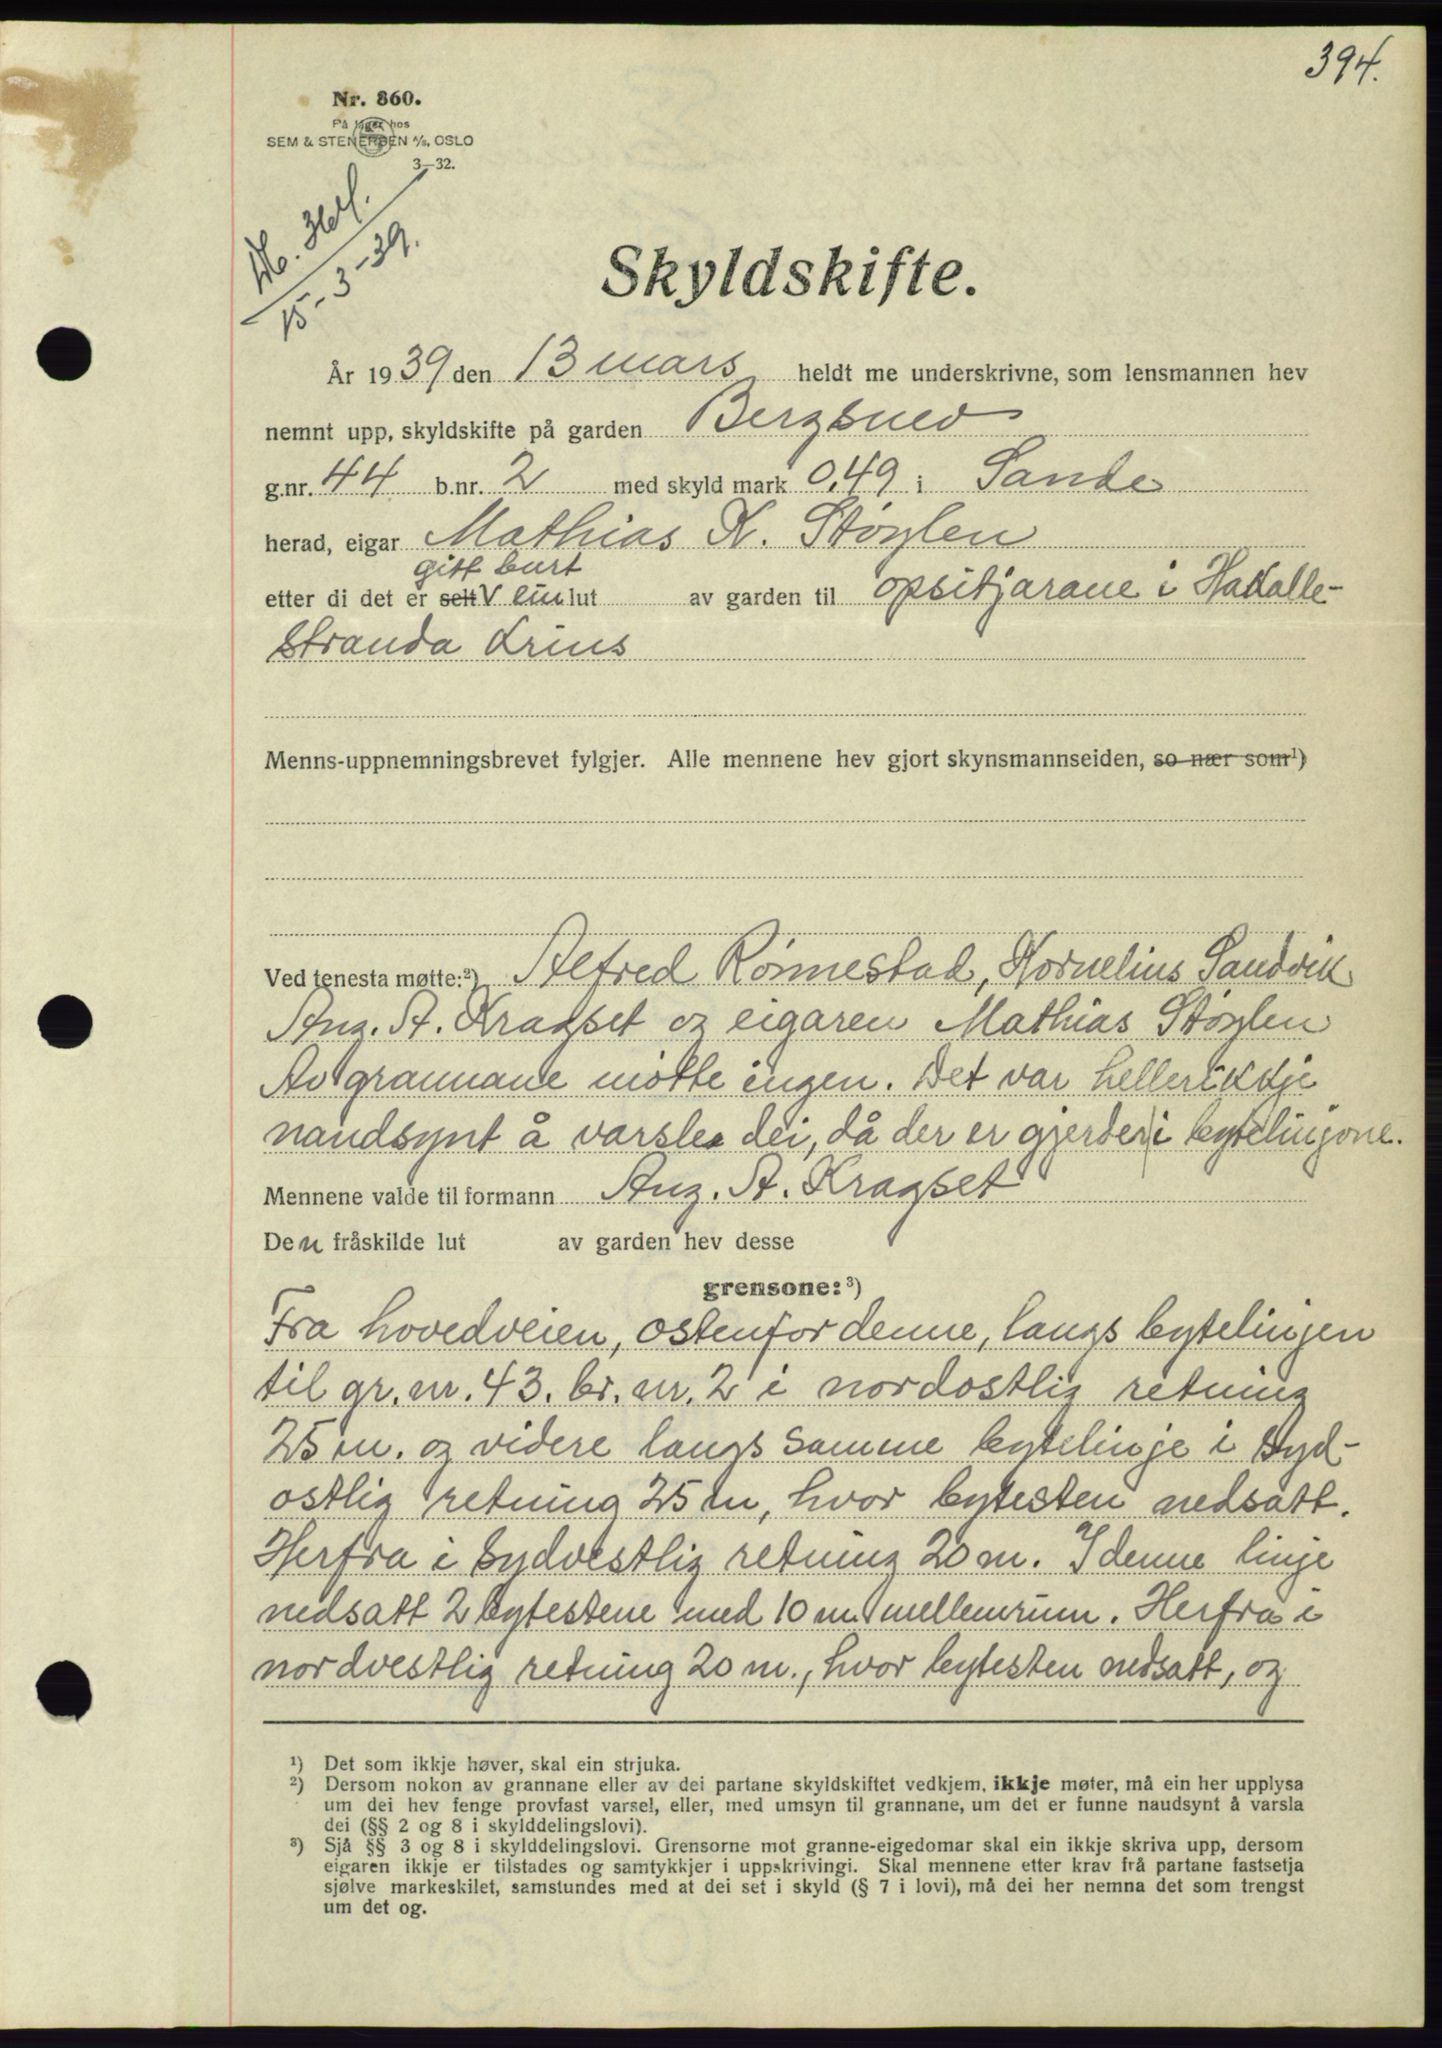 394.
Nr. 860.
På lager hos
SEM & STENERSEN A/S, OSLO
3—32.
15-3-39.
Skyldskifte.
År 1939 den 13 mars heldt me underskrivne, som lensmannen hev
nemnt upp, skyldskifte på garden Bergsnev
g.nr. 44 b.nr. 2 med skyld mark 0,49 i Sande
herad, eigar Mathias K. Støylen
gitt burt
etter di det er selt V ein lut av garden til opsitjarane i Hakalle-
stranda krins
Menns-uppnemningsbrevet fylgjer. Alle mennene hev gjort skynsmannseiden, so nær som¹)
Ved tenesta møtte:²) Alfred Rönnestad, Kornelius Sandvik
Aug. A. Kragset og eigaren Mathias Støylen
Av grannane møtte ingen. Det var heller ikkje
naudsynt å varsle dei, då der er gjerde i bytelinjone.
Mennene valde til formann Aug. A. Kragset
Den fråskilde lut av garden hev desse
grensone:³)
Fra hovedveien, ostenfor denne, langs bytelinjen
til gr. nr. 43. br. nr. 2 i nordostlig retning
25 m. og videre langs samme bytelinje i syd-
ostlig retning 25 m, hvor bytesten nedsatt.
Herfra i sydvestlig retning 20 m. I denne linje
nedsatt 2 bytestene med 10 m. mellemrum. Herfra i
nordvestlig retning 20 m., hvor bytesten nedsatt, og
¹) Det som ikkje høver, skal ein strjuka.
²) Dersom nokon av grannane eller av dei partane skyldskiftet vedkjem, ikkje møter, må ein her upplysa
um dei hev fenge provfast varsel, eller, med umsyn til grannane, um det er funne naudsynt å varsla
dei (§§ 2 og 8 i skylddelingslovi).
³) Sjå §§ 3 og 8 i skylddelingslovi. Grensorne mot granne-eigedomar skal ein ikkje skriva upp, dersom
eigaren ikkje er tilstades og samtykkjer i uppskrivingi. Skal mennene etter krav frå partane fastsetja
sjølve markeskilet, samstundes med at dei set i skyld (§ 7 i lovi), må dei her nemna det som trengst
um det og.